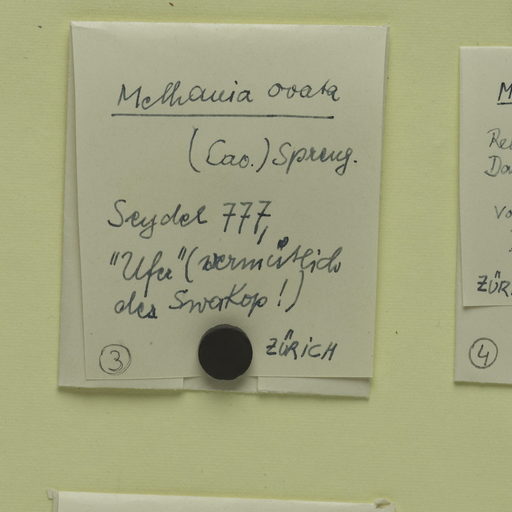 Melhania ovata
(Cav.) Spreng.
Seydel 777,
"Ufer" (vermutlich
des Swakop!)
3 ZÜRICH
M
Re
Da
Vo
ZÜR
4